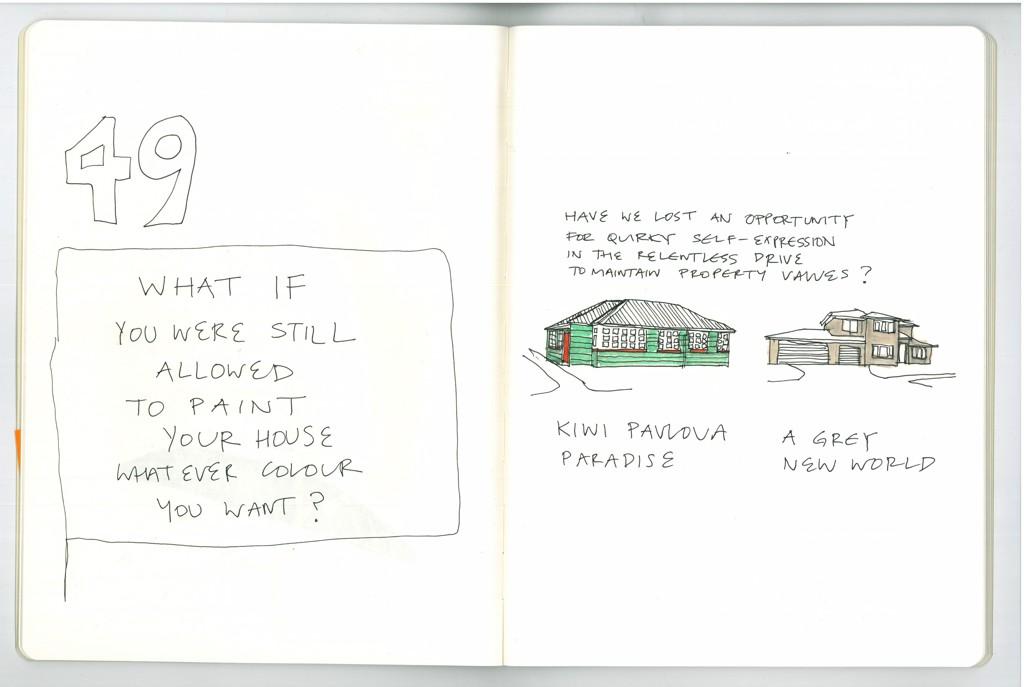 49
WHAT IF
YOU WERE STILL
ALLOWED
TO PAINT
YOUR HOUSE
WHATEVER COLOUR
YOU WANT?
HAVE WE LOST AN OPPORTUNITY
FOR QUIRKY SELF-EXPRESSION
IN THE RELENTLESS DRIVE
TO MAINTAIN PROPERTY VALUES?
KIWI PAVLOVA
PARADISE
A GREY
NEW WORLD